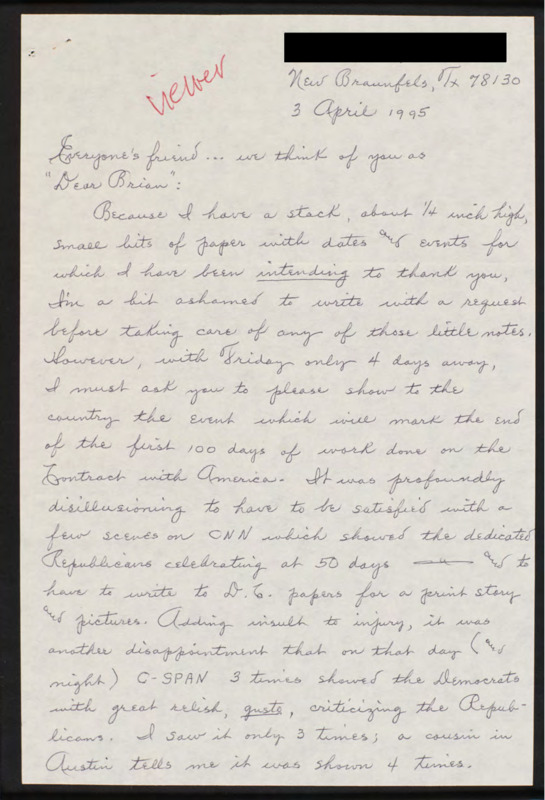 viewer
New Braunfels, Tx 78130
3 April 1995
Everyone's friend... we think of you as
"Dear Brian":
Because I have a stack, about 1/4 inch high,
small bits of paper with dates and events for
which I have been intending to thank you,
I'm a bit ashamed to write with a request
before taking care of any of those little notes.
However, with Friday only 4 days away,
I must ask you to please show to the
country the event which will mark the end
of the first 100 days of work done on the
Contract with America. It was profoundly
disillusioning to have to be satisfied with a
few scenes on CNN which showed the dedicated
Republicans celebrating at 50 days — and to
have to write to D.C. papers for a print story
and pictures. Adding insult to injury, it was
another disappointment that on that day (and
night) C-SPAN 3 times showed the Democrats
with great relish, gusto, criticizing the Repub-
licans. I saw it only 3 times; a cousin in
Austin tells me it was shown 4 times.